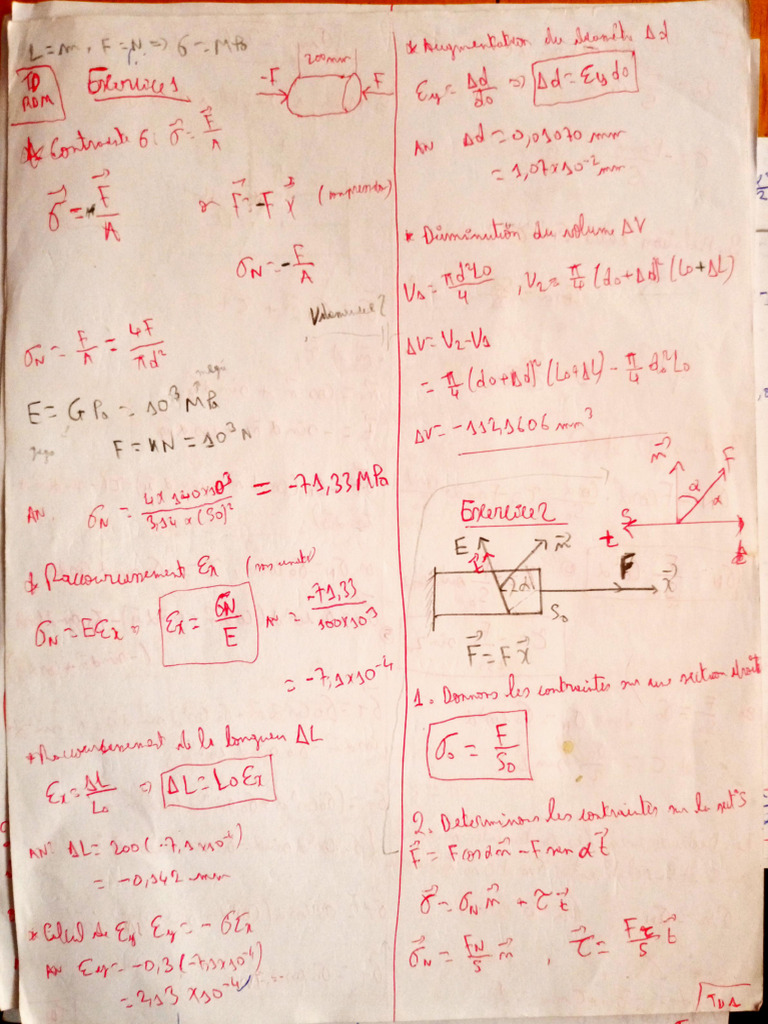 L = m, F = N => σ = MPa
TD RDM
Exercice 1
200 mm
-F
F
* Contrainte σ : σ⃗ = F⃗/A
σ⃗ = F⃗/A
F⃗ = -F x⃗
σN = -F/A
σN = F/A = 4F/πd²
E = GPa = 10³ MPa
F = kN = 10³ N
AN
σN = 4 x 140 x 10³ / 3,14 x (50)² = -71,33 MPa
* Raccourcissement Ex
σN = E Ex
Ex = σN/E
AN = -71,33 / 100x10³
= -7,1x10⁻⁴
* Raccourcissement de la longueur ΔL
Ex = ΔL/L0 => ΔL = L0 Ex
AN: ΔL = 200 (-7,1x10⁻⁴)
= -0,142 mm
* Calcul de Ey: Ey = -σEx
AN Ey = -0,3 (-7,1x10⁻⁴)
= 2,13 x10⁻⁴
* Augmentation du diamètre Δd
Ey = Δd/d0 => Δd = Ey d0
AN Δd = 0,01070 mm
= 1,07x10⁻² mm
* Diminution du volume ΔV
V1 = πd²L0/4 , V2 = π/4 (d0+Δd)² (L0+ΔL)
ΔV = V2 - V1
= π/4 (d0+Δd)² (L0+ΔL) - π/4 d0² L0
ΔV = -112,1606 mm³
Exercice 2
F⃗ = F x⃗
1. Donnons les contraintes sur une section droite
σ0 = F/S0
2. Determinons les contraintes sur la sect° S
F⃗ = F cosα n⃗ - F sinα t⃗
σ⃗ = σN n⃗ + τ t⃗
σ⃗N = FN/S n⃗ , τ⃗ = Fτ/S t⃗
TD1